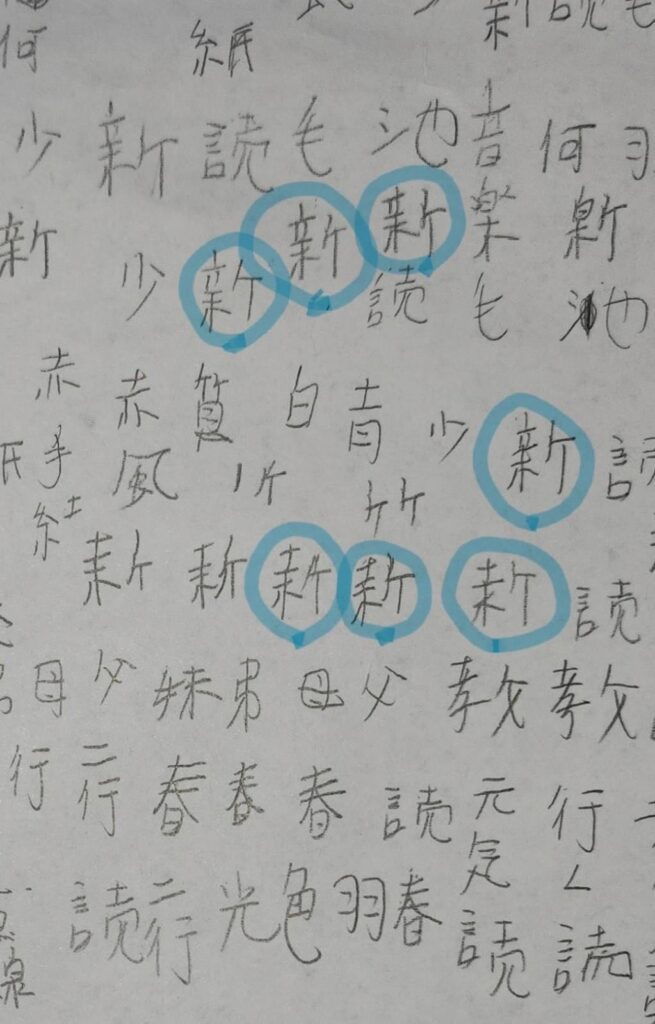 何 紙 新 読 毛
少 新 読 毛 池 音 何 羽
新 少 新 新 新 読 楽 毛 池
赤 赤 質 白 青 少 新 読
手 風 竹
紅 新 新 新 新 新 読
母 父 妹 弟 母 父 教 教
行 二行 春 春 春 読 元気 行
読 二行 光 色 羽 春 読 読
泉